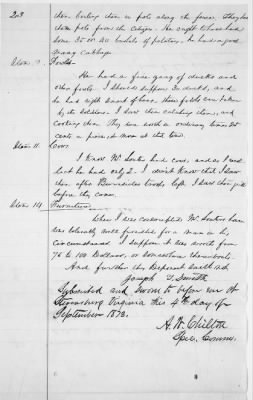 203
them boiling them in pots along the fence. They bor
them pots from the Citizen. He ought to have had
some 35 or 40 bushels of potatoes. he had a good
many cabbage.
Item 9. Fowls
He had a fine gang of ducks and
other fowls. I should suppose 30 ducks, and
he had eight head of geese, these fowls were taken
by the soldiers. I saw them catching them, and
cooking them. They are worth in ordinary times 25
cents a piece, & more at that time.
Item 11. Cows.
I know Mr had cows, and as I
but he had only 2. I don't know that I saw
them after troops left. I saw them just
before they came.
Item 14. Furniture
When I was Mr house
was tolerably well furnished for a man in his
circumstances. I suppose it was worth from
75 to 100 dollars, or somewhere thereabouts.
And further this Deponent saith not.
Joseph T. Smith
Subscribed and Sworn to before me at
Virginia this 4th day of
September 1872.
A. W. Chilton
Spec. Commr.